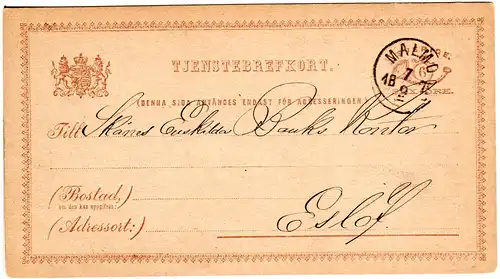 TJENSTEBREFKORT.
MALMÖ
7 6
18
(DENNA SIDA ANVÄNDES ENDAST FÖR ADRESSERINGEN)
SEX ÖRE.
Till Skånes Enskilda Banks Kontor
(Bostad,
om den kan uppgifvas:)
(Adressort:) Eslöf.